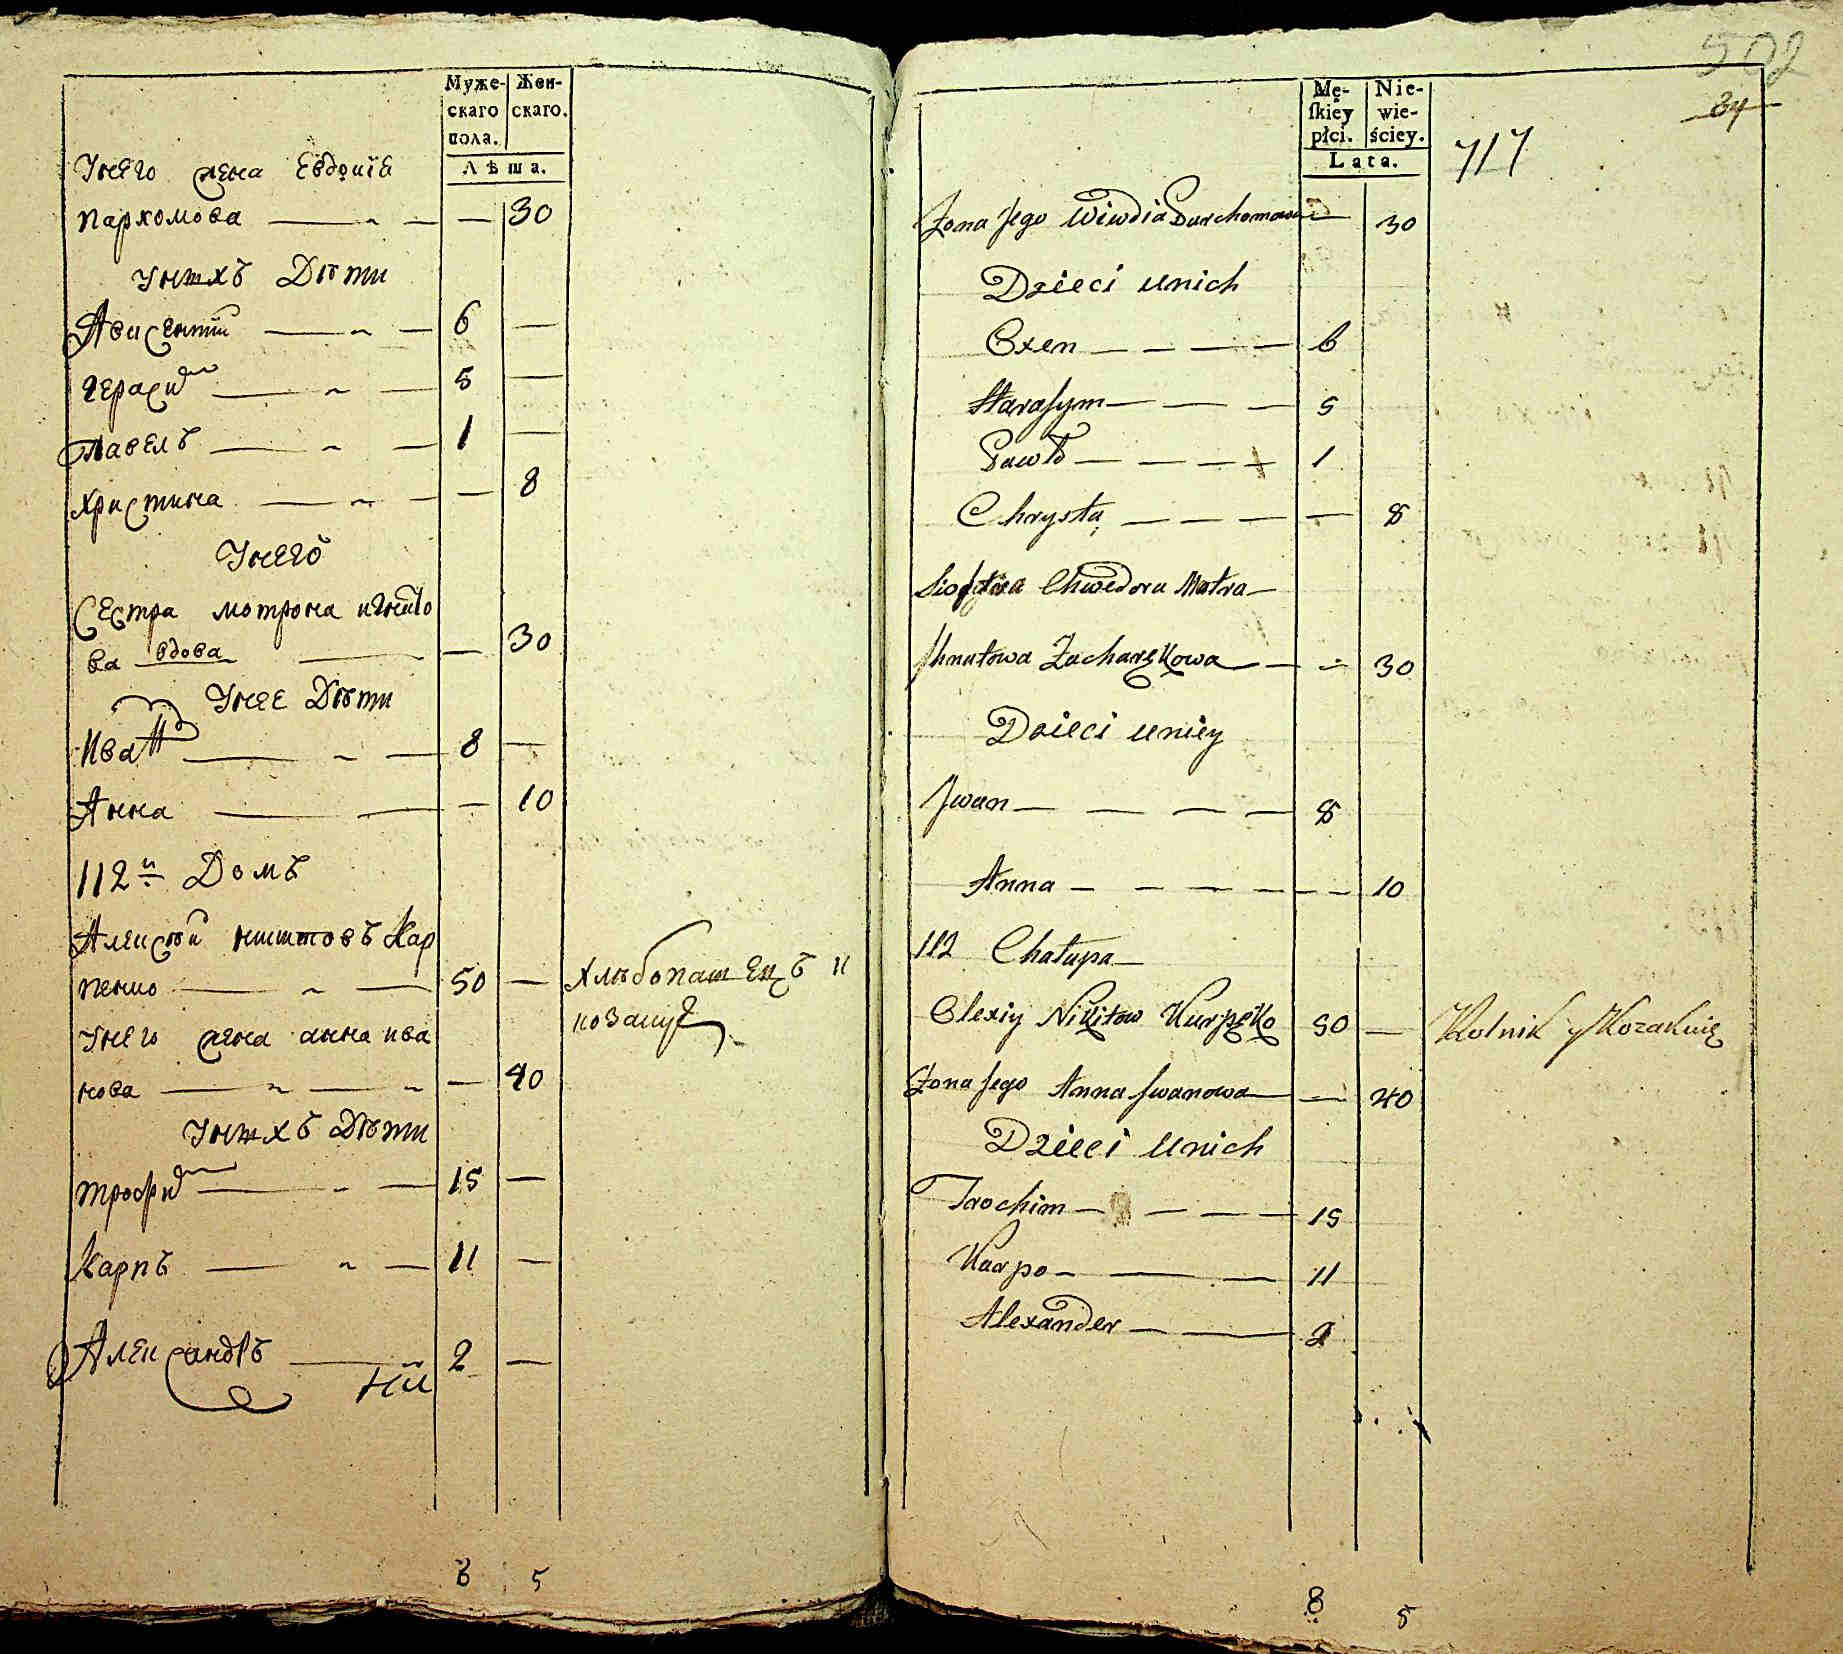 Муже-
скаго
пола.
Жен-
скаго.
Лѣта.
Унего жена Евдокїа
пархомова — 30
Унихъ Дѣти
Авксентїй — 6 —
Герасим — 5 —
Павелъ — 1 —
Христина — 8
Унего
Сестра мотрона игнато
ва вдова — 30
Унее Дѣти
Иван — 8 —
Анна — 10
112й Домъ
Алексѣй никитовъ Кар
пенко — 50 — Хлѣбопашецъ и
козакуе
Унего жена анна ива
нова — 40
Унихъ Дѣти
трофим — 15 —
Карпъ — 11 —
Александръ — 2 —
8 5
502
34
717
Mę-
ſkiéy
płci.
Nie-
wie-
ściey.
Lata.
Żona Jego Wiwdia Parchomowa — 30
Dzieci unich
Oxen — 6
Harasym — 5
Pawło — 1
Chrysta — 8
Siostra Chwedora Matra
Ihnatowa Zacharękowa — 30
Dzieci uniéy
Jwan — 8
Anna — 10
112 Chałupa
Olexiy Nikitow Karpęko 50 — Rolnik y Kozakuię
Żona Jego Anna Jwanowa — 40
Dzieci unich
Trochim — 15
Karpo — 11
Alexander — 2
8 5